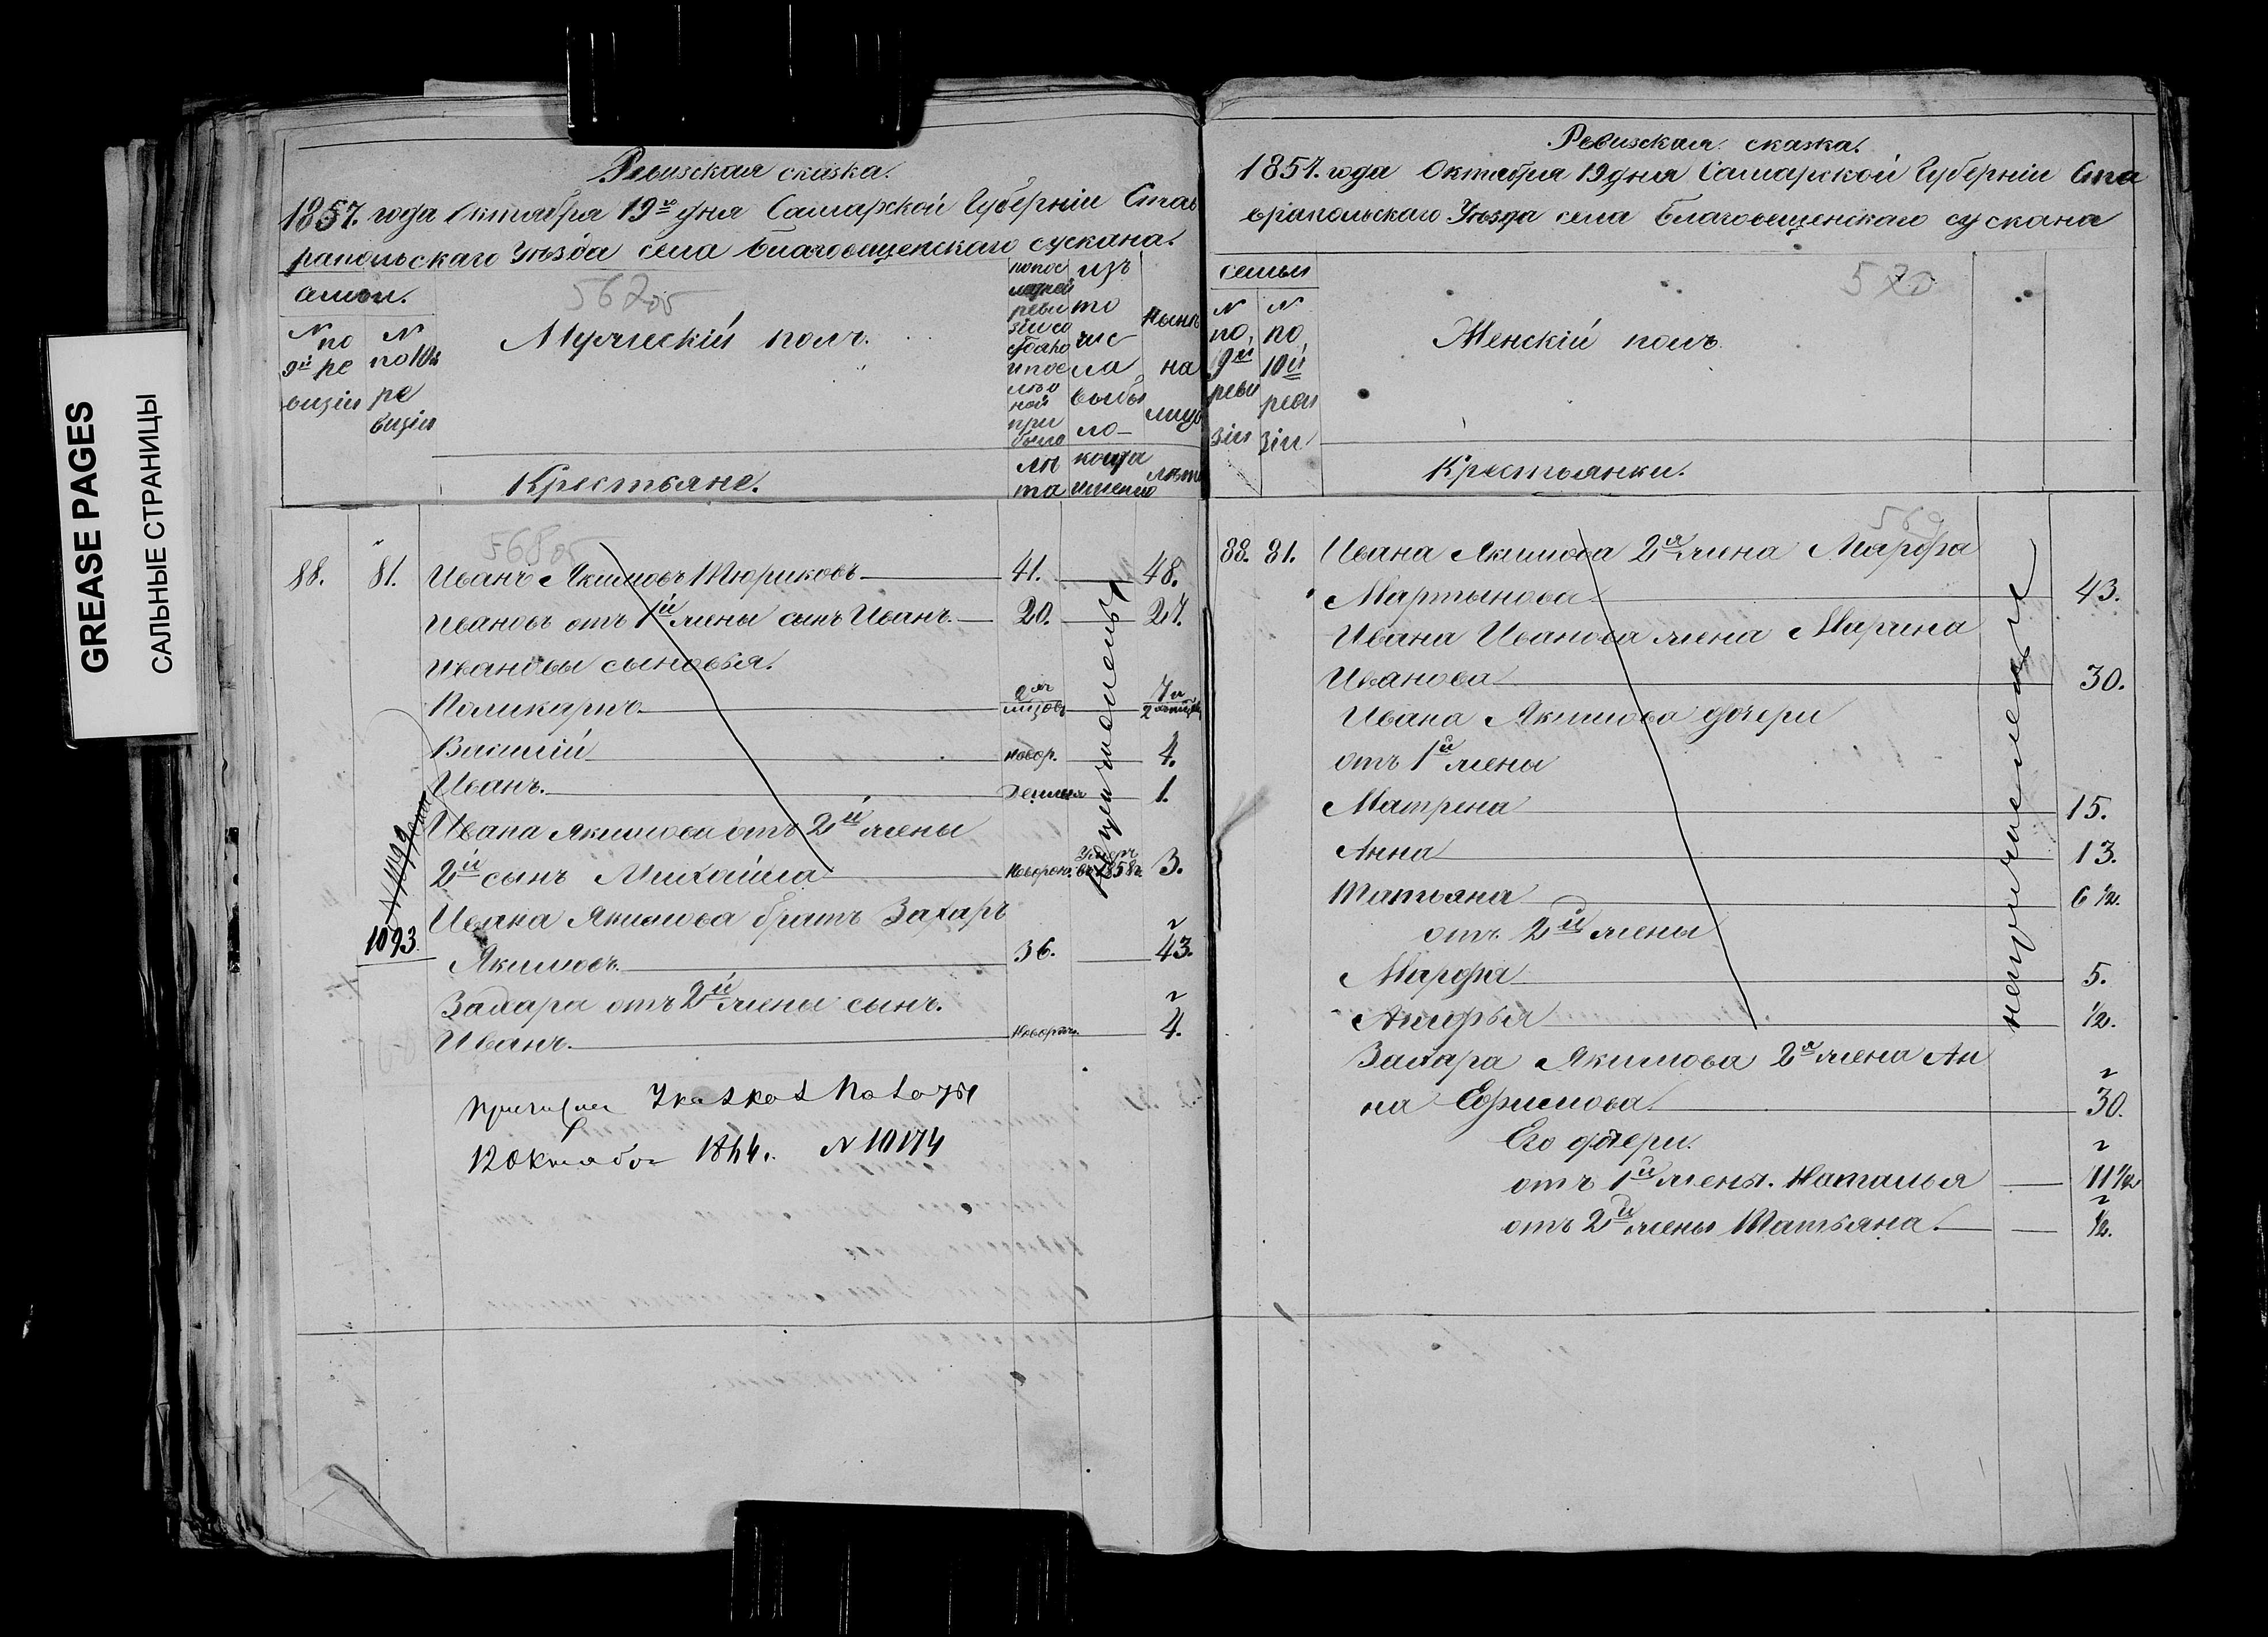 GREASE PAGES
САЛЬНЫЕ СТРАНИЦЫ
Ревизская сказка.
1857. года Октября 19го дня Самарской Губерніи Став
рапольскаго Уѣзда села Благовещенскаго сускана.
567об
семьи.
N по 9й ревизіи
N по 10й ревизіи
Мужескій полъ.
Крестьяне.
лѣта
изъ того числа выбыло
когда именно
нынѣ на лицо
лѣта
568об
88. 81. Иванъ Якимовъ Тюриковъ 41. 48.
Ивановъ отъ 1й жены сынъ Иванъ. 20. 27.
Ивановы сыновья.
Поликарпъ
Василій новор. 4.
Иванъ. 1.
Ивана Якимова отъ 2й жены
2й сынъ Михайла новорож. 1858г. 3.
Ивана Якимова братъ Захаръ
1093
Якимовъ. 36. 43.
Захара отъ 2й жены сынъ.
Иванъ. новорож. 4.
12 Октября N 10174
Ревизская сказка.
1857. года Октября 19 дня Самарской Губерніи Ста
врапольскаго Уѣзда села Благовещенскаго сускана
570
семьи
N по 9й ревизіи
N по 10й ревизіи
Женскій полъ
Крестьянки.
88. 81. Ивана Якимова 2я жена Марфа
Мартынова 43.
Ивана Иванова жена Марина
Иванова 30.
Ивана Якимова дочери
отъ 1й жены
Матрена 15.
Анна 13.
Татьяна 6 1/2.
отъ 2й жены
Марфа 5.
1/2.
Захара Якимова 2я жена Ан
на Ефимова. 30.
Его дочери.
отъ 1й жены. Наталья 11 1/2
отъ 2й жены Татьяна. 1/2.